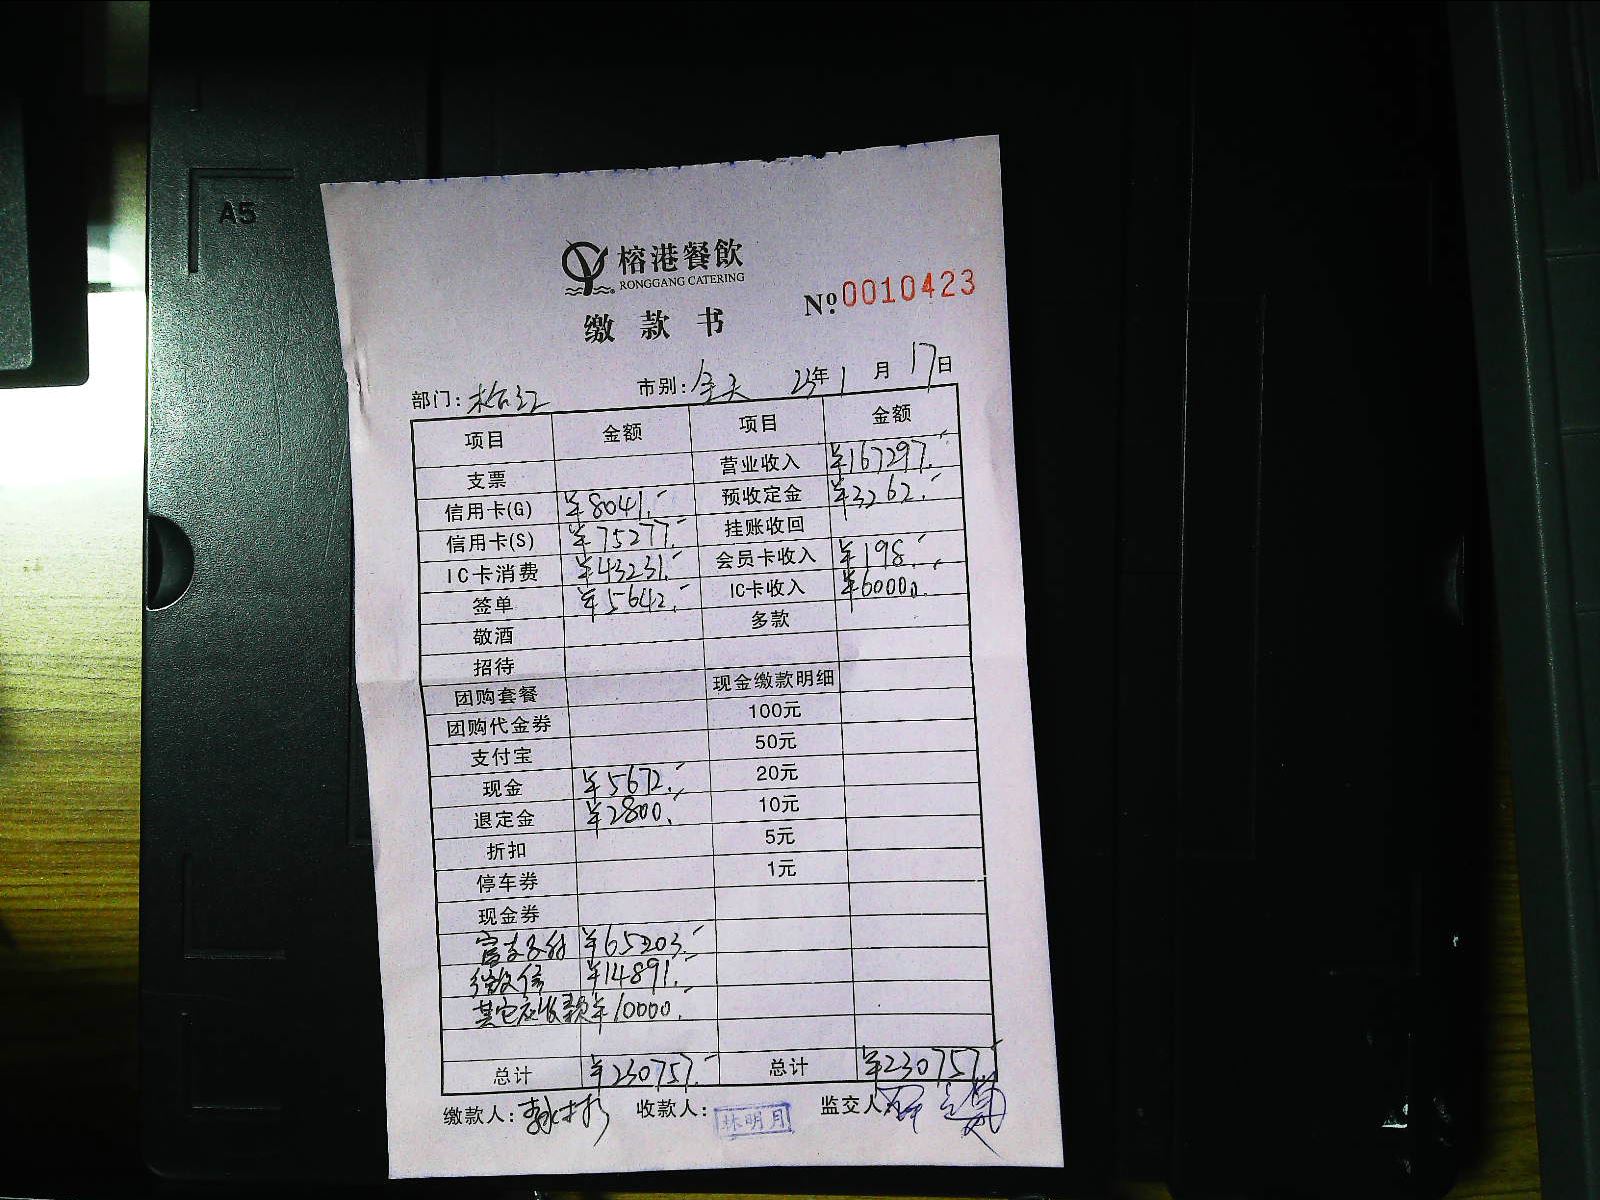 A5
榕港餐飲
RONGGANG CATERING
缴款书
Nº 0010423
部门: 市别: 全天 23年1月17日
项目 金额 项目 金额
支票 营业收入 ¥167297.-
信用卡(G) ¥8041.- 预收定金 ¥3262.-
信用卡(S) ¥75277.- 挂账收回
IC卡消费 ¥43231.- 会员卡收入 ¥198.-
签单 ¥5642.- IC卡收入 ¥60000.-
敬酒 多款
招待
团购套餐 现金缴款明细
团购代金券 100元
支付宝 50元
现金 ¥5672.- 20元
退定金 ¥2800.- 10元
折扣 5元
停车券 1元
现金券
富支付 ¥65203.-
微信 ¥14891.-
其它应收款 ¥10000.-
总计 ¥230757.- 总计 ¥230757.-
缴款人: 收款人: 林明月 监交人: